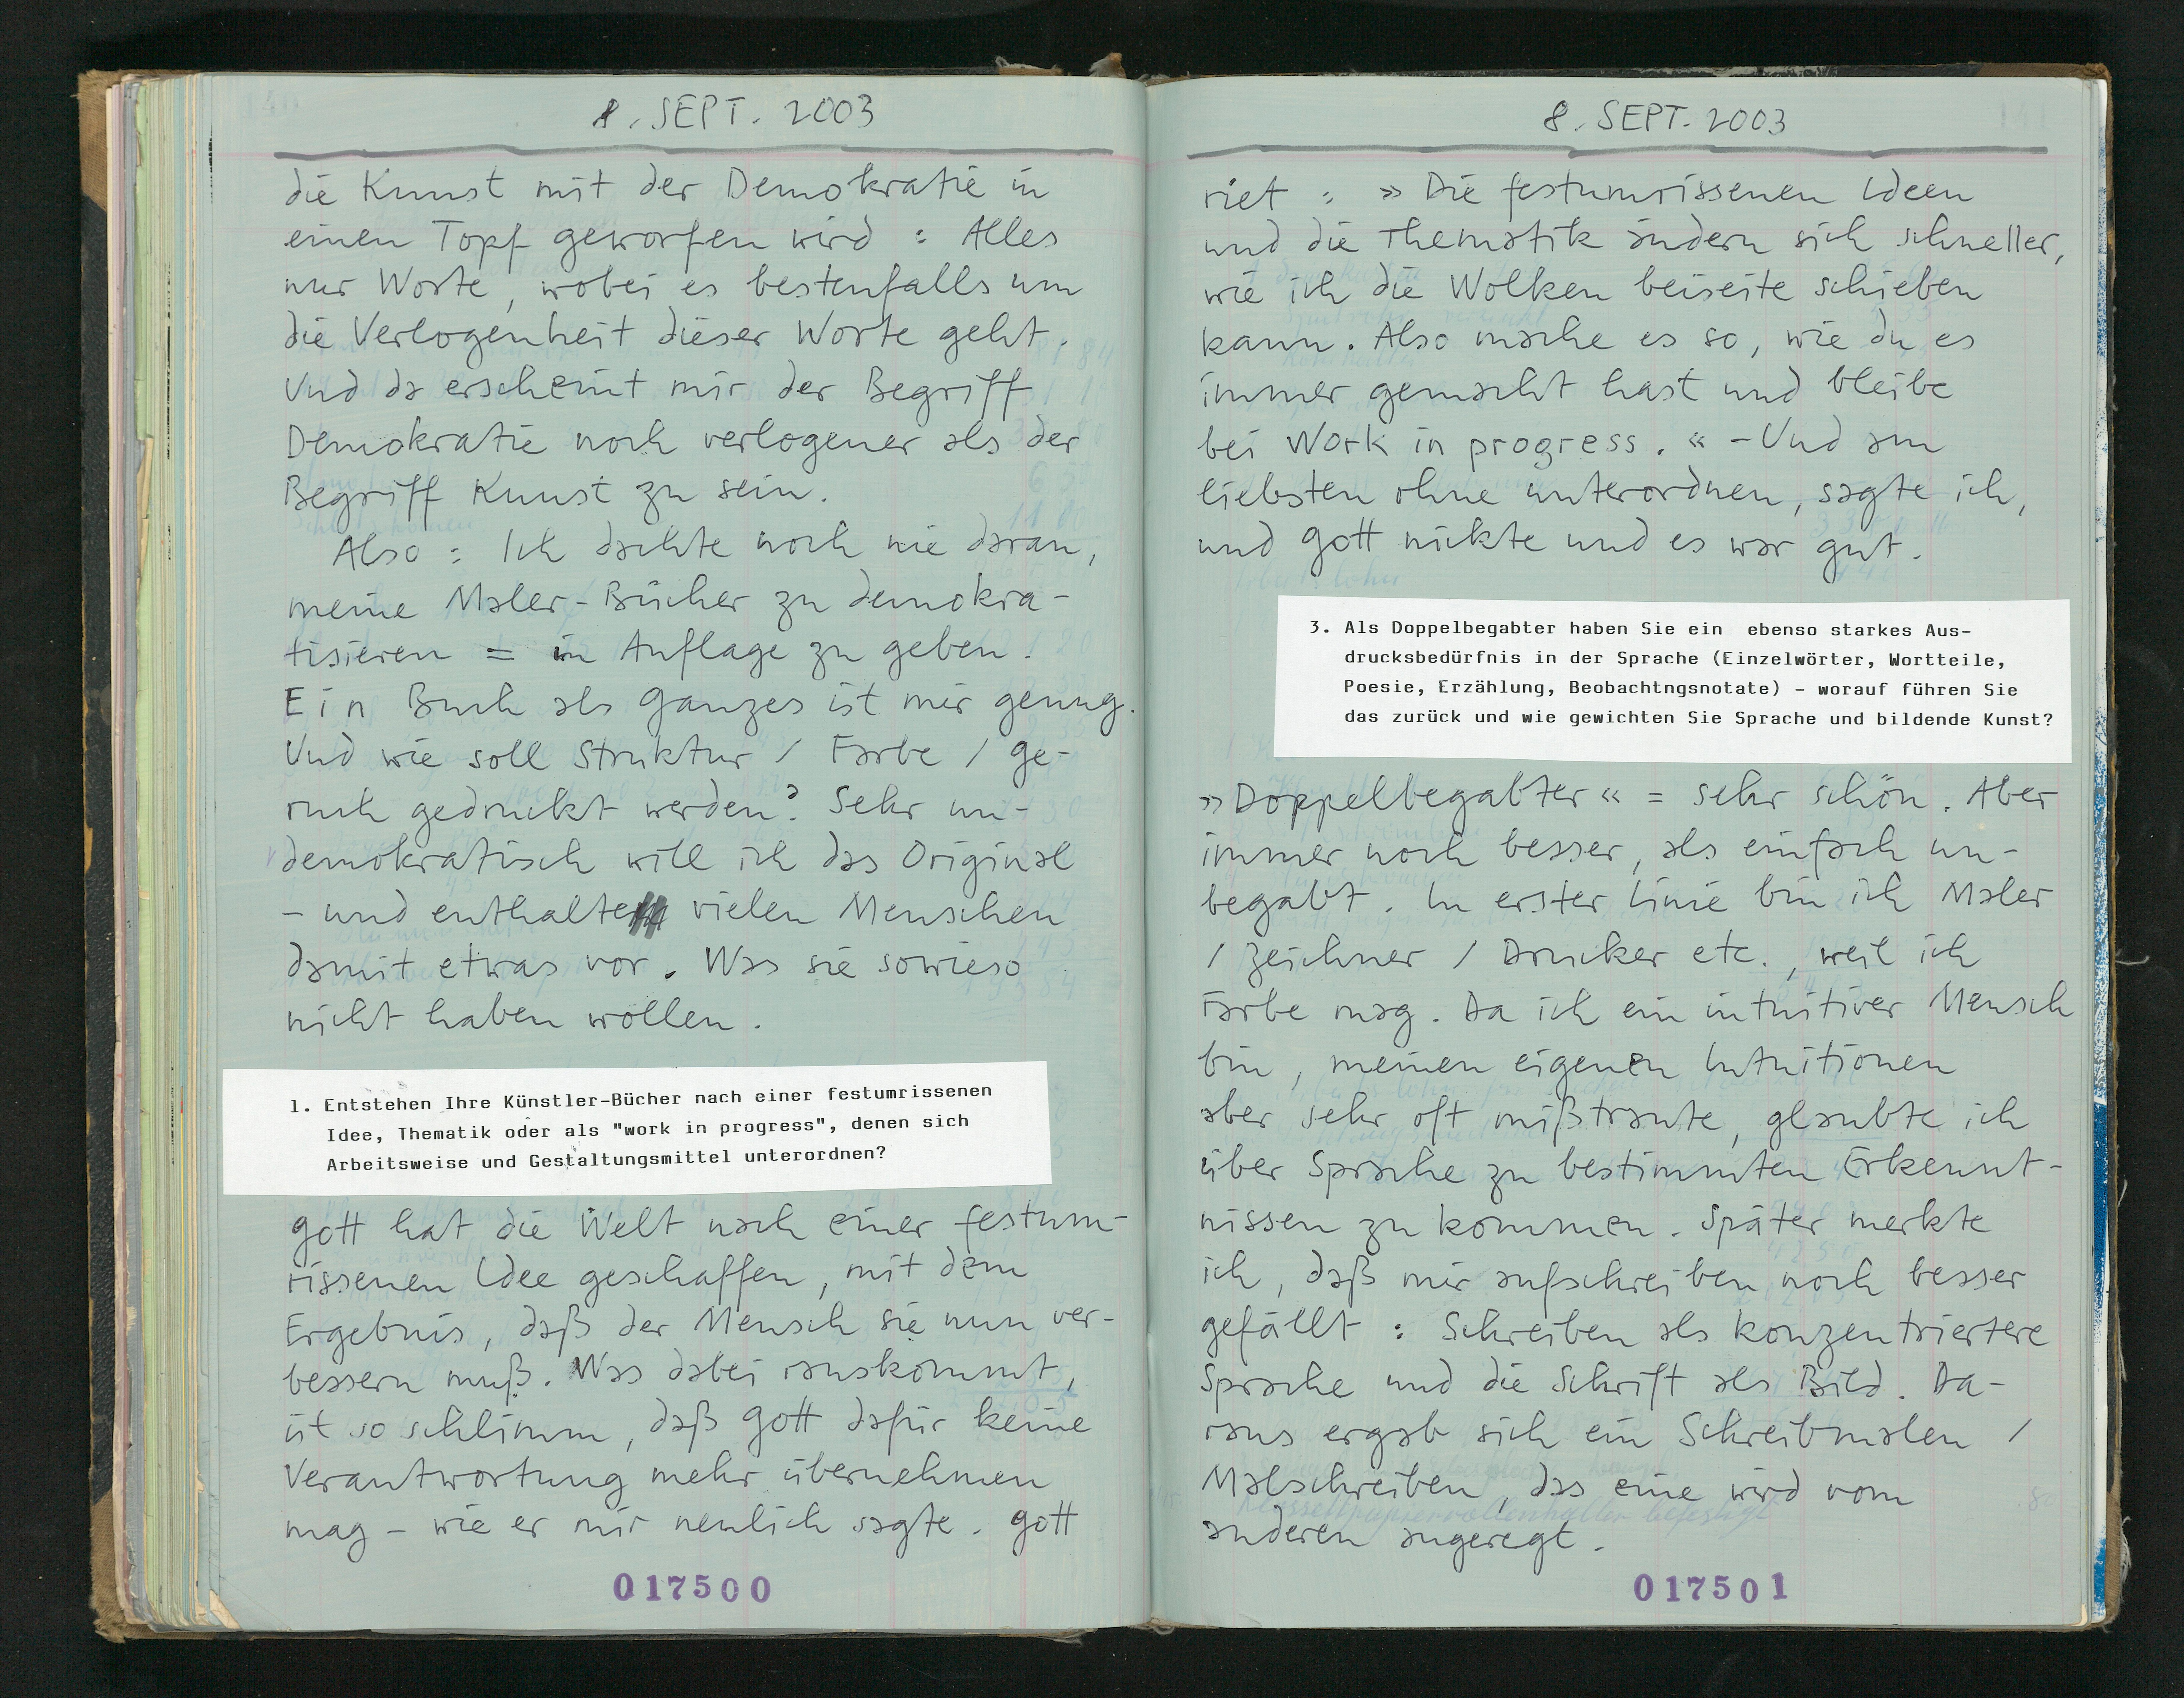 8. SEPT. 2003
die Kunst mit der Demokratie in
einen Topf geworfen wird : Alles
nur Worte, wobei es bestenfalls um
die Verlogenheit dieser Worte geht.
Und da erscheint mir der Begriff
Demokratie noch verlogener als der
Begriff Kunst zu sein.
Also : Ich dachte noch nie daran,
meine Maler-Bücher zu demokra-
tisieren = in Auflage zu geben.
Ein Buch als Ganzes ist mir genug.
Und wie soll Struktur / Farbe / Ge-
ruch gedruckt werden? Sehr un-
demokratisch will ich das Original
- und enthalte vielen Menschen
damit etwas vor. Was sie sowieso
nicht haben wollen.
1. Entstehen Ihre Künstler-Bücher nach einer festumrissenen
Idee, Thematik oder als "work in progress", denen sich
Arbeitsweise und Gestaltungsmittel unterordnen?
gott hat die Welt nach einer festum-
rissenen Idee geschaffen, mit dem
Ergebnis, daß der Mensch sie nun ver-
bessern muß. Was dabei rauskommt,
ist so schlimm, daß gott dafür keine
Verantwortung mehr übernehmen
mag - wie er mir neulich sagte. gott
017500
8. SEPT. 2003
riet : » Die festumrissenen Ideen
und die Thematik ändern sich schneller,
wie ich die Wolken beiseite schieben
kann. Also mache es so, wie du es
immer gemacht hast und bleibe
bei Work in progress. « - Und am
liebsten ohne unterordnen, sagte ich,
und gott nickte und es war gut.
3. Als Doppelbegabter haben Sie ein ebenso starkes Aus-
drucksbedürfnis in der Sprache (Einzelwörter, Wortteile,
Poesie, Erzählung, Beobachtngsnotate) - worauf führen Sie
das zurück und wie gewichten Sie Sprache und bildende Kunst?
» Doppelbegabter « = sehr schön. Aber
immer noch besser, als einfach un-
begabt. In erster Linie bin ich Maler
/ Zeichner / Drucker etc., weil ich
Farbe mag. Da ich ein intuitiver Mensch
bin, meinen eigenen Intuitionen
aber sehr oft mißtraute, glaubte ich
über Sprache zu bestimmten Erkennt-
nissen zu kommen. Später merkte
ich, daß mir aufschreiben noch besser
gefällt : Schreiben als konzentriertere
Sprache und die Schrift als Bild. Da-
raus ergab sich ein Schreibmalen /
Malschreiben, das eine wird vom
anderen angeregt.
017501